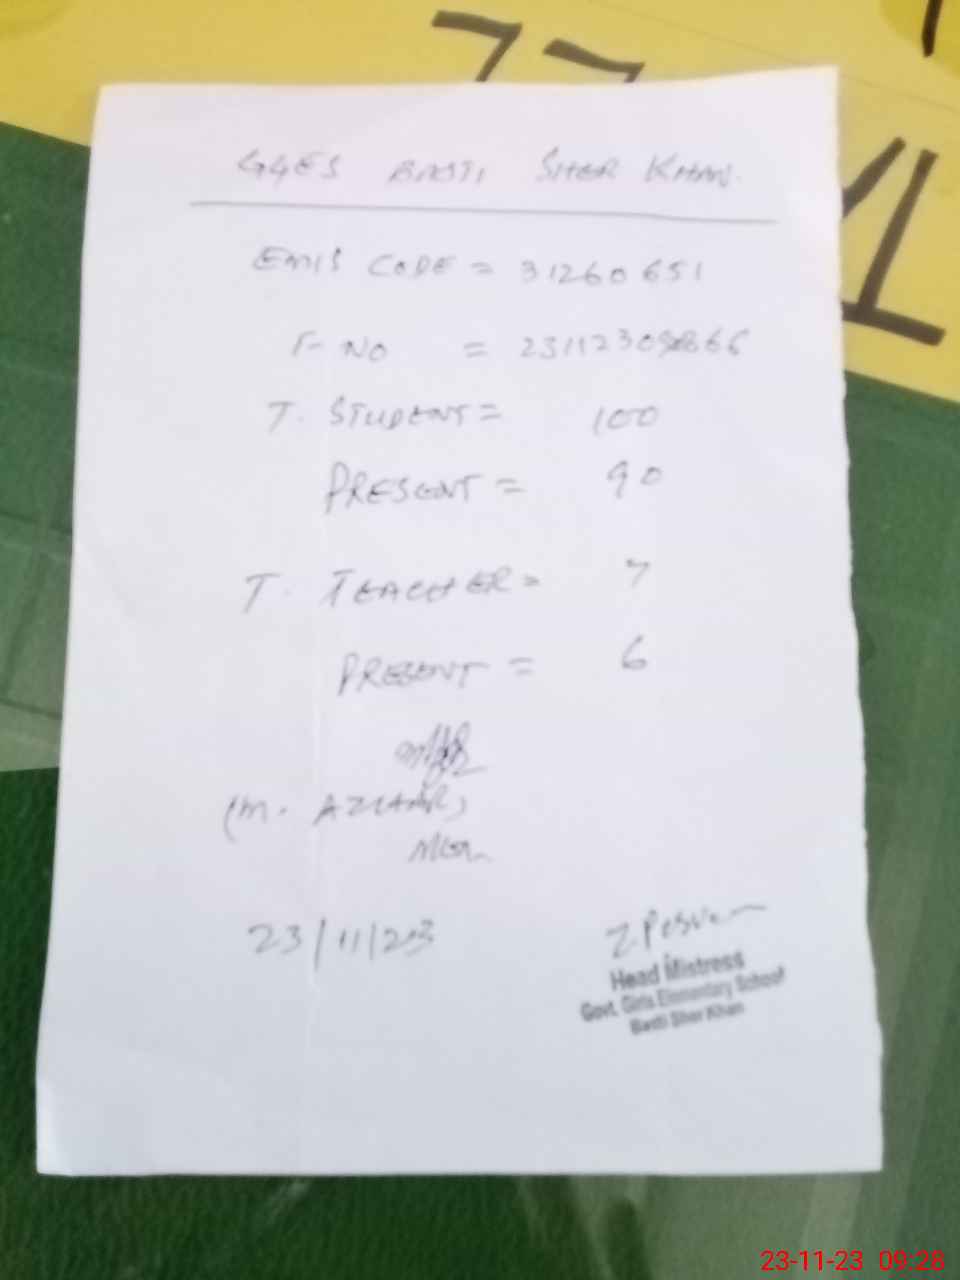 GGES BASTI SHER KHAN.
EMIS CODE = 31260651
F-NO =
T. STUDENT = 100
PRESENT = 90
T. TEACHER = 7
PRESENT = 6
(M. AZHAR)
23/11/23
Head Mistress
Govt. Girls Elementary School
Basti Sher Khan
23-11-23 09:28